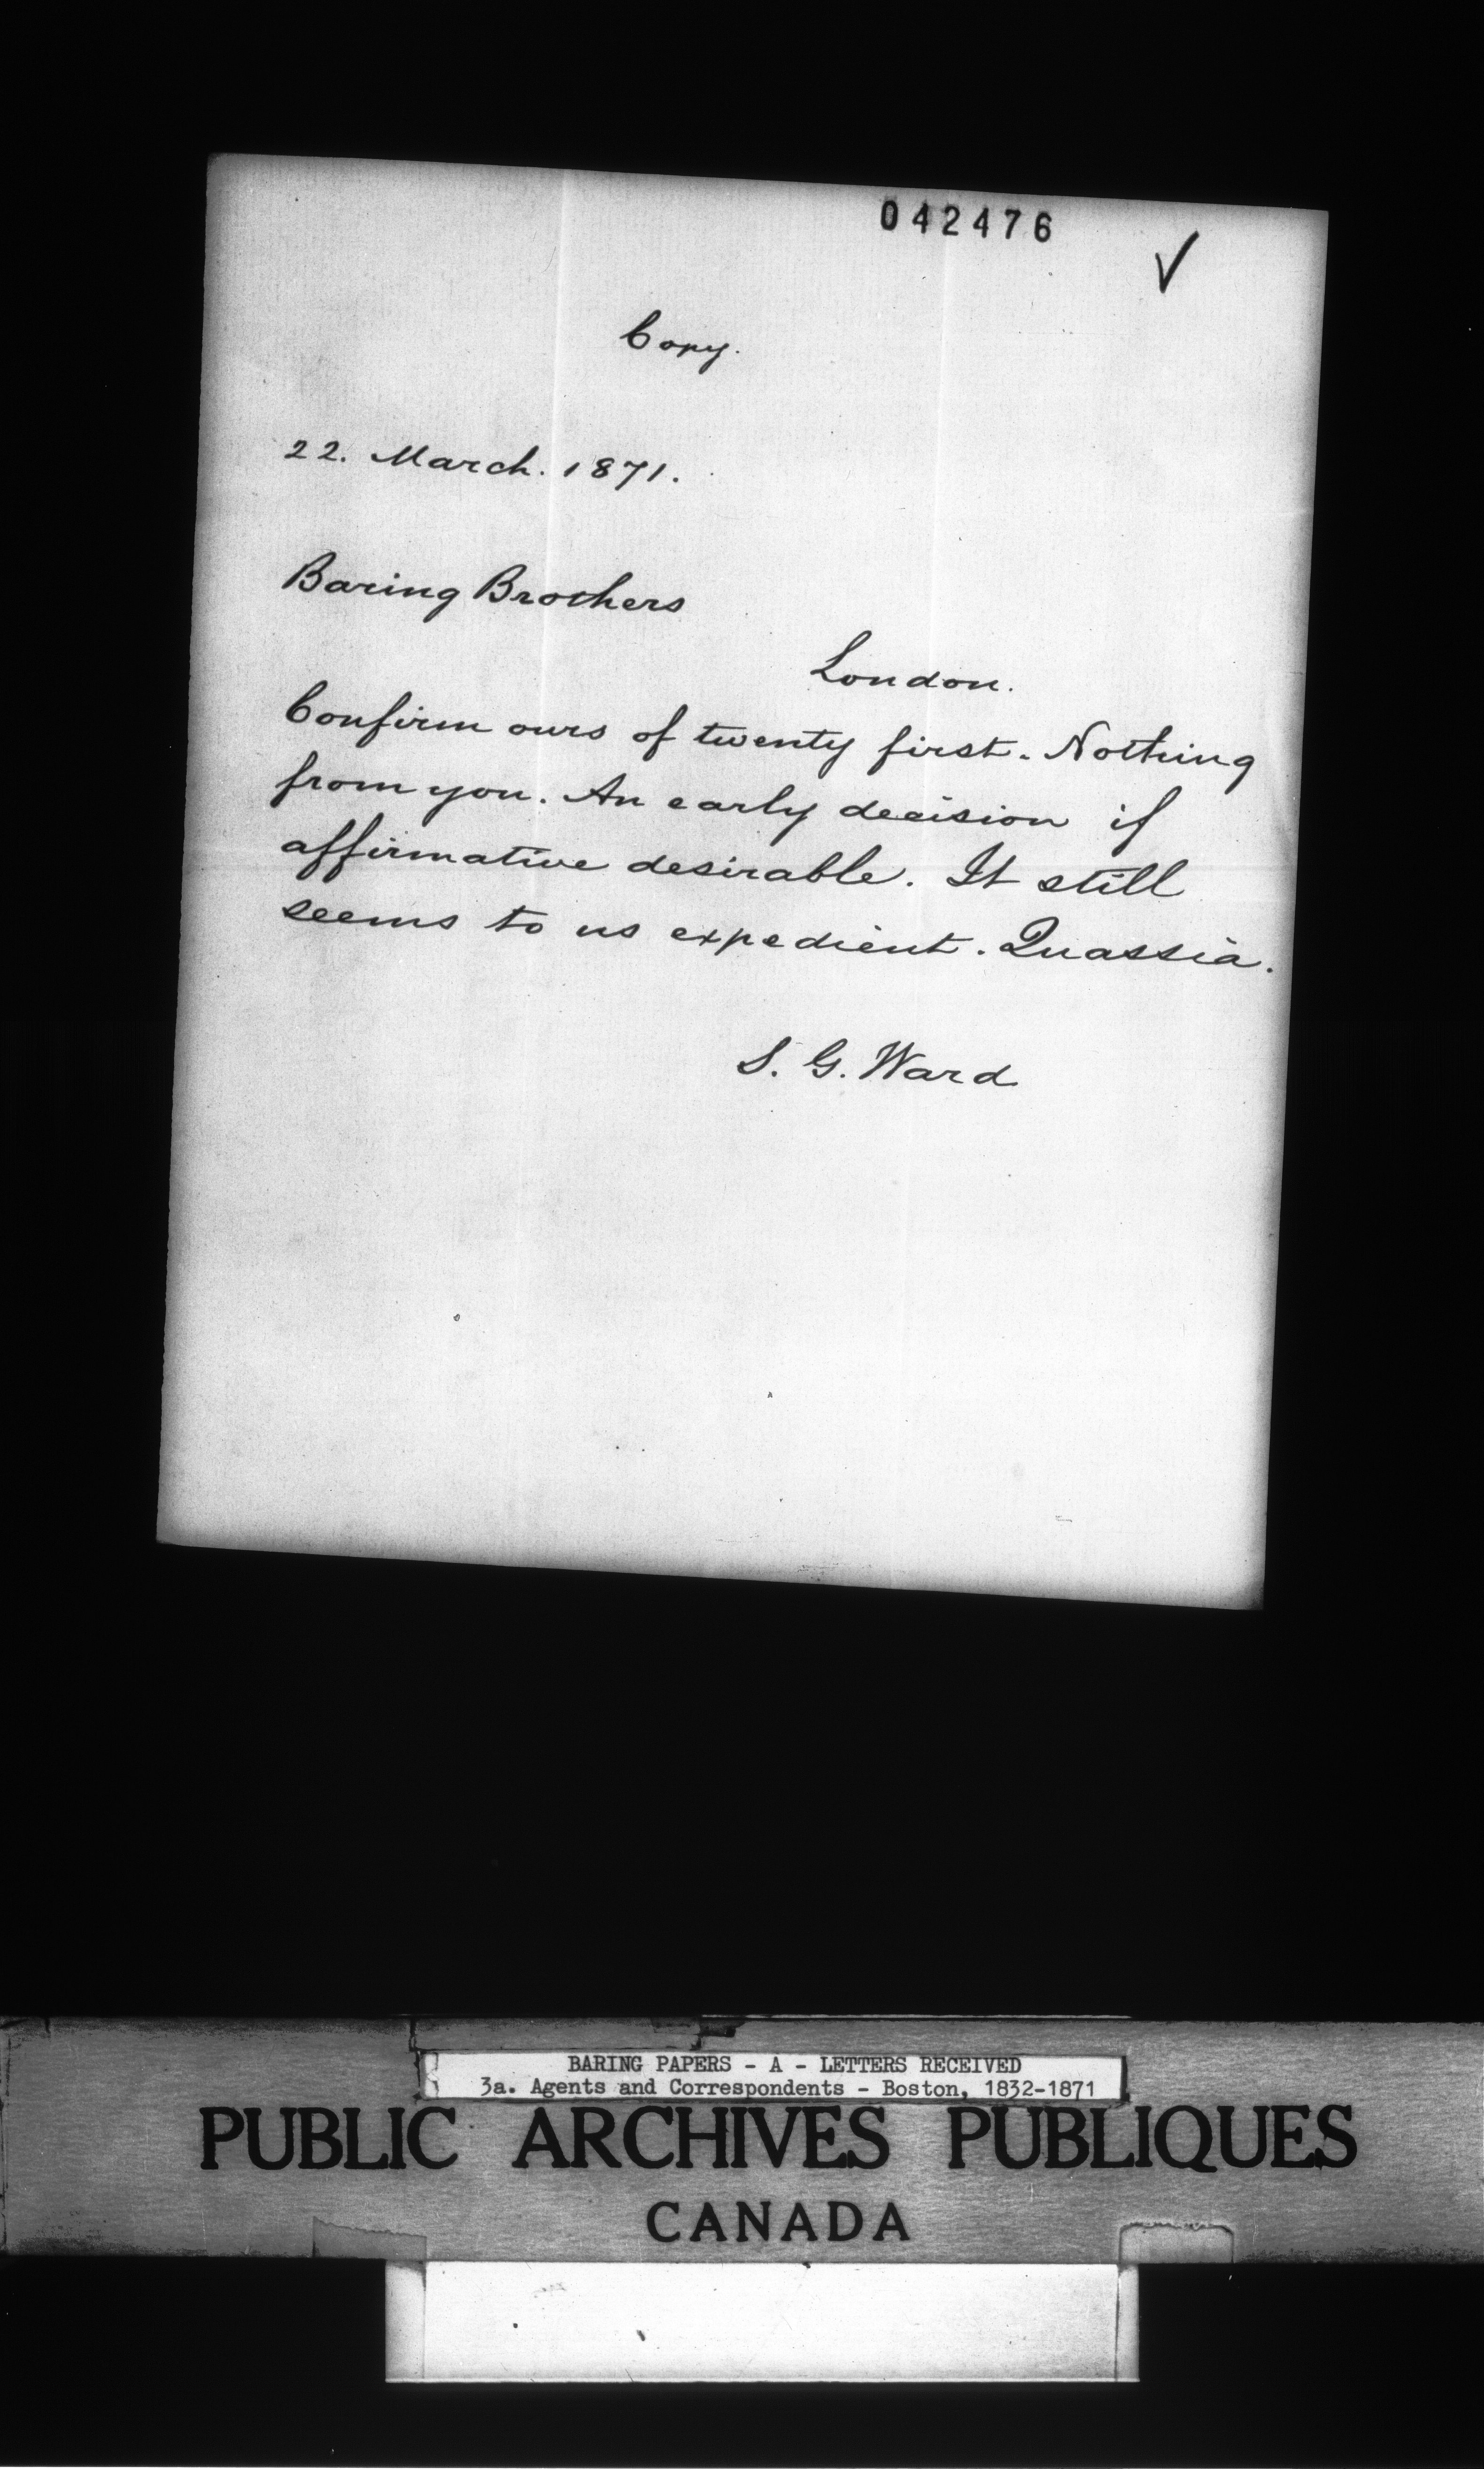 042476
✓
Copy.
22. March. 1871.
Baring Brothers
London.
Confirm ours of twenty first. Nothing
from you. An early decision if
affirmative desirable. It still
seems to us expedient. Quassia.
S. G. Ward
BARING PAPERS - A - LETTERS RECEIVED
3a. Agents and Correspondents - Boston, 1832-1871
PUBLIC ARCHIVES PUBLIQUES
CANADA